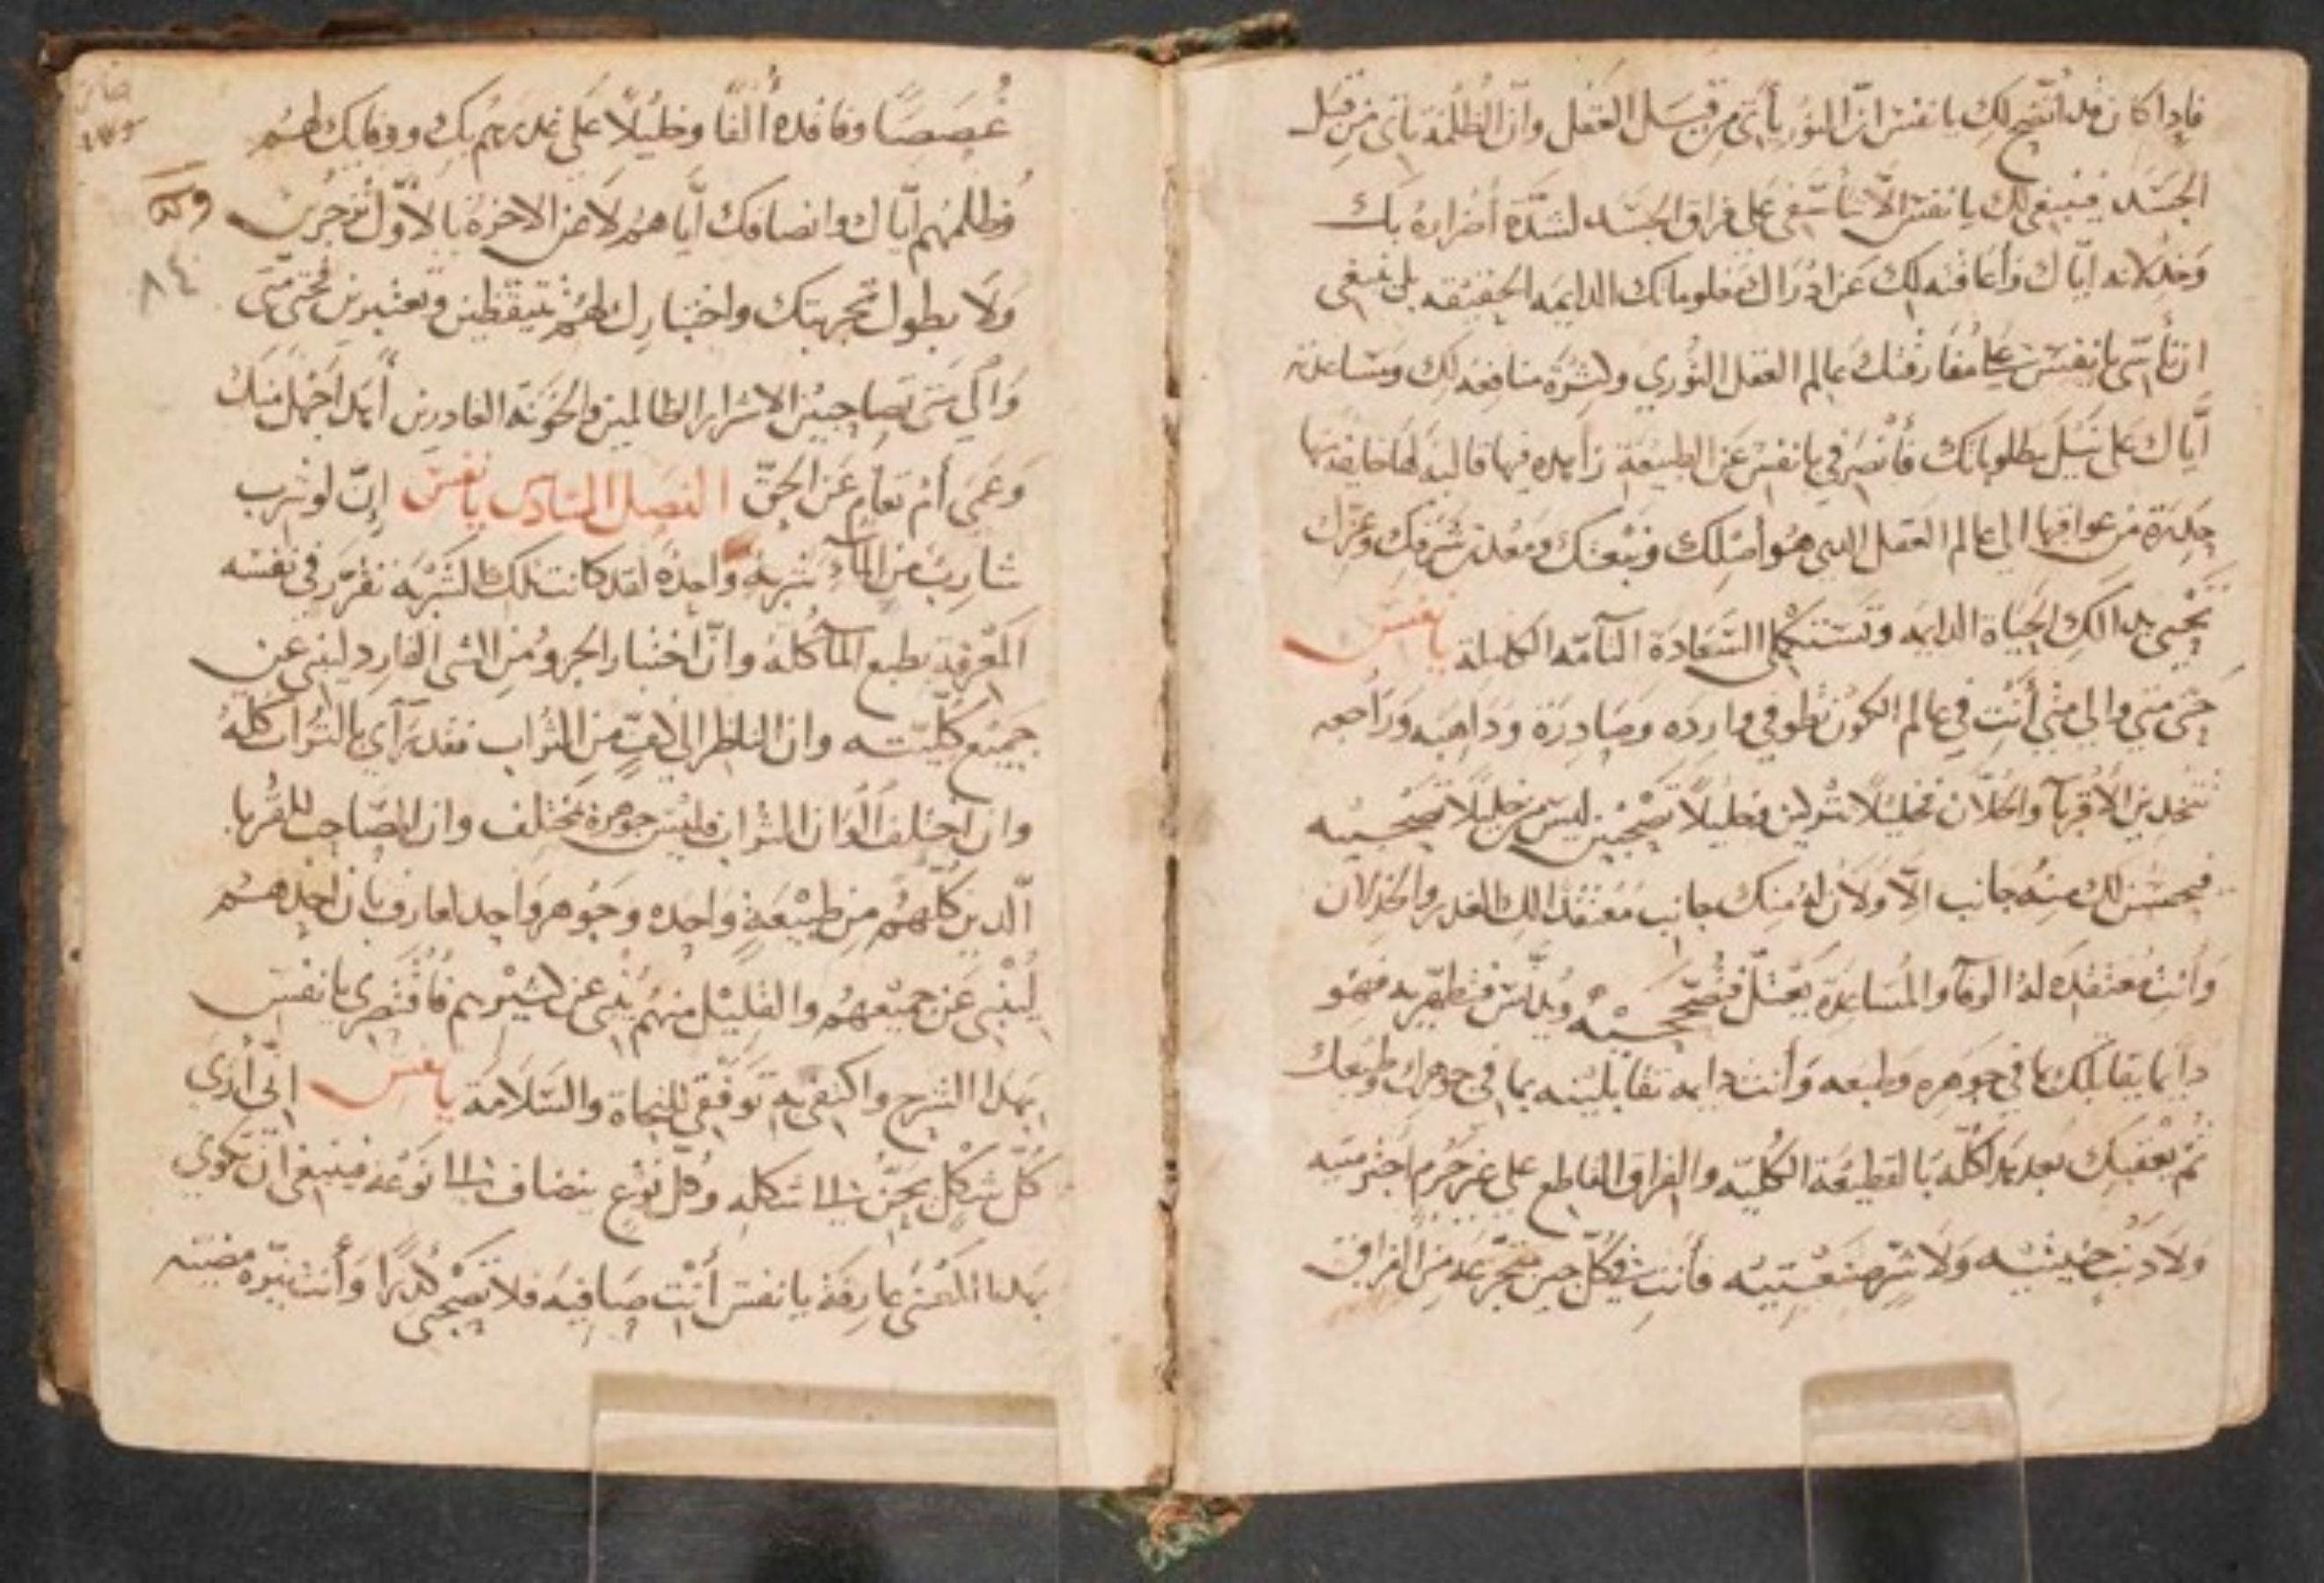 فاذا كان قد اتضح لك يا نفس ان النور يأتي من قبل العقل وان الظلمة تاتي من قبل
الجسد فينبغي لك يا نفس الا تأسفي على فراق الجسد لشدة أضراره بك
وخذلانه اياك وأعاقته لك عن ادراك معلوماتك الدايمه الحقيقه بل ينبغي
ان تأسي يا نفس على مفارقتك عالم العقل النوري ولشرة منافعه لك ومساعدته
أياك على نيل مطلوباتك فأنصرفي يا نفس عن الطبيعة زاهده فيها قاليه لها خايفه
حذرة من عواقبها الى عالم العقل الدي هو أصلك ونبعتك ومعدن شرفك وعزك
تحيي بدالك الحياة الدايمه وتستكملي السعادة التآمه الكامله يا نفس
حتى متى والى متى أنت في عالم الكون تطوفي وارده وصادرة وداهبه وراجعه
تتخدين الأقربآ والخلان فخليلا تتركين وخليلا تصحبين ليس من خليلا تصحبيه
فيحسن لك منه جانب الا ولان له منك جانب معتقدا لك الغدر والخدلان
وأنت معتقده له الوفآ والمساعدة يعتل فتصححيه ويدنس فتطهريه فهو
دآيما يقابلك بما في جوهره وطبعه وأنت دايمه تقابلينه بما في جوهرك وطبعك
ثم يعقبك بعد هدا كله بالقطيعة الكليه والفراق القاطع على غير جرم اجترمتيه
ولا دنب جنيتيه ولا شر صنعتيه فأنت في كل حين متجرعه من الفراق
غصصا وفاقده ألفا وخليلا على غدرهم بك ووفايك لهم
وظلمهم اياك وانصافك أياهم لا عن الاخرة بالاول تنزجرين
ولا بطول تجربتك واختبارك لهم تتيقظين وتعتبرين فحتى متى
والى متى تصاحبين الاشرار الظالمين والخونة الغادرين أبدا جهل منك
وعمى أم تعام عن الحق الفصل السادس يا نفس إن لو شرب
شارب من المآء شربة واحدة لقد كانت تلك الشربة تقرر في نفسه
المعرفة بطبع المآ كله وان اختبار الجزو من الشي الفارد لينبي عن
جميع كليته وان الناظر الى كف من التراب فقد رآي بالتراب كله
وان اختلف ألوان التراب فليس جوهره مختلف وان المصاحب للقربا
الدين كلهم من طبيعة واحده وجوهر واحد لعارف بأن احدهم
لينبي عن جميعهم والقليل منهم ينبي عن كثيرهم فأقتصري يا نفس
بهدا الشرح واكتفي به توفقي للنجاة والسلامة يا نفس إني أرى
كل شكل يحن الى شكله وكل نوع ينضاف الى نوعه فينبغي ان تكوني
بهدا المعنى عارفة يا نفس أنت صافيه فلا تصحبي كدرا وأنت نيرة مضيئه